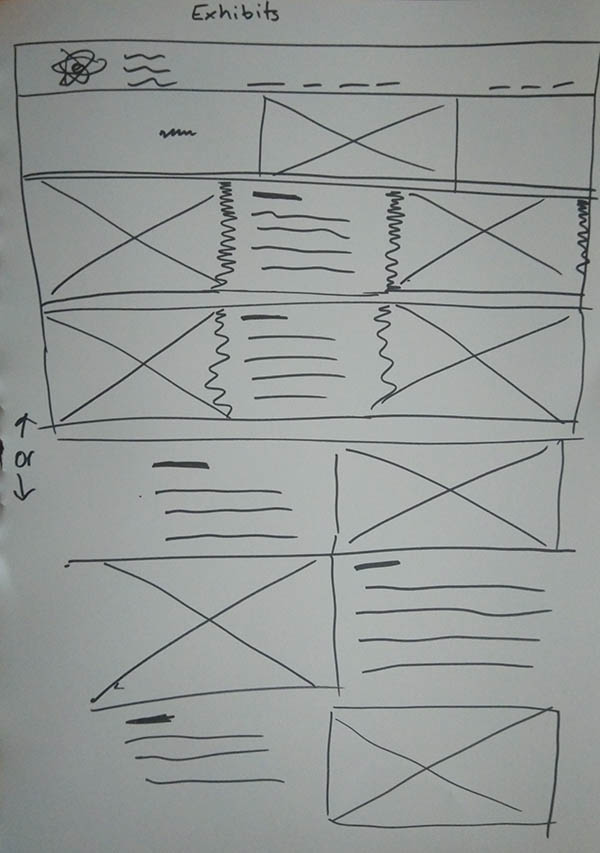 Exhibits
or